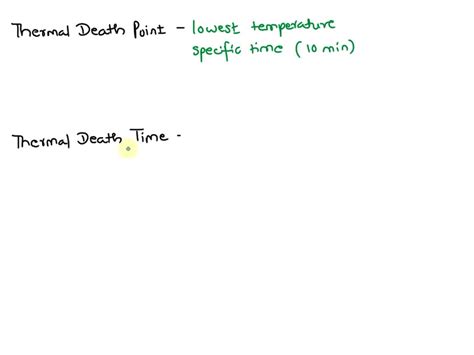 Thermal Death Point - lowest temperature
specific time (10 min)
Thermal Death Time -